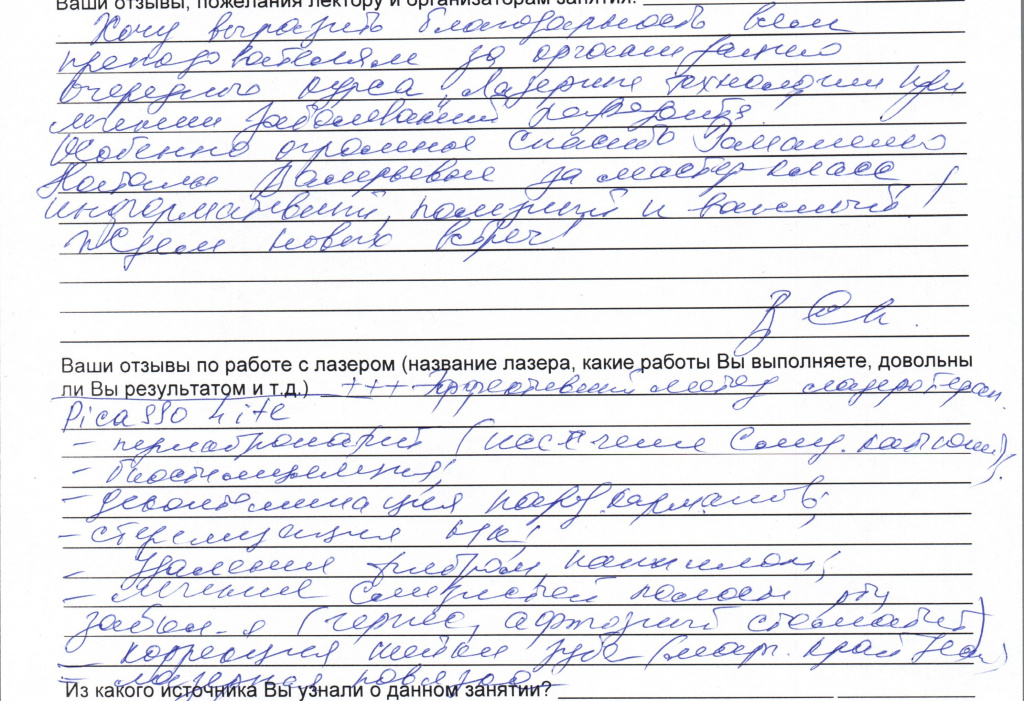 Ваши отзывы, пожелания лектору и организаторам занятия:
Хочу выразить благодарность всем
преподователям за организацию
очередного курса "Лазерные технологии при
лечении заболеваний пародонта".
Особенно огромное спасибо Романенко
Наталье Валерьевне за мастер-класс
информативный, полезный и важный!
Ждем новых встреч!
Ваши отзывы по работе с лазером (название лазера, какие работы Вы выполняете, довольны
ли Вы результатом и т.д.) +++ Эффективный метод лазеротерапии.
Picasso Lite
- перикоронарит (иссечение слиз. капюшона);
- биостимуляция;
- деконтаминация парод. карманов;
- стерилизация к/к;
- удаление фибром, папиллом;
- лечение слизистой полости рта
забол-я (герпес, афтозный стоматит)
- коррекция шейки зуба (марг. край десны)
- лазерная повязка
Из какого источника Вы узнали о данном занятии?